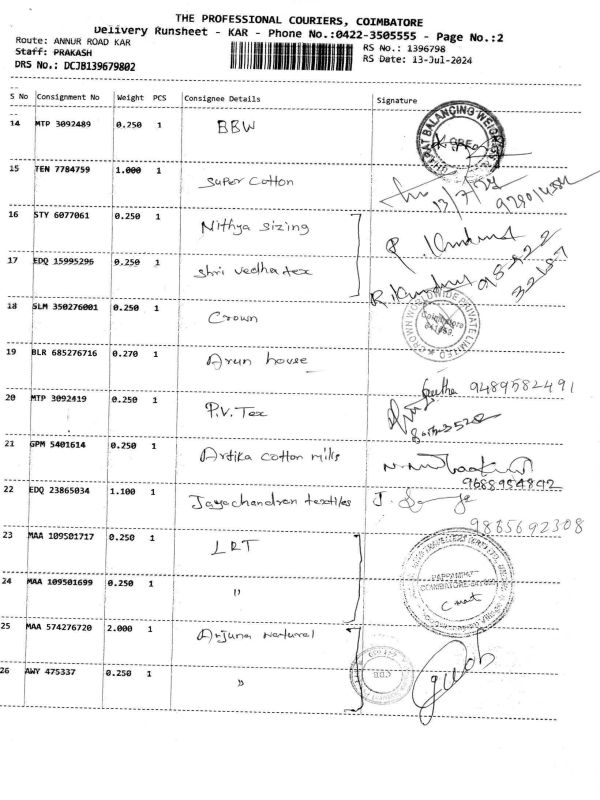 THE PROFESSIONAL COURIERS, COIMBATORE
Delivery Runsheet - KAR - Phone No.:0422-3505555 - Page No.:2
Route: ANNUR ROAD KAR
RS No.: 1396798
Staff: PRAKASH
RS Date: 13-Jul-2024
DRS No.: DCJB139679802
S No Consignment No Weight PCS Consignee Details Signature
14 MTP 3092489 0.250 1 BBW
BHARAT BALANCING WEIGHT
15 TEN 7784759 1.000 1 Super Cotton
13/7/24
16 STY 6077061 0.250 1 Nithya Sizing
17 EDQ 15995296 0.250 1 Shri vedha tex
18 SLM 350276001 0.250 1 Crown
CROWN WORLDWIDE PRIVATE LIMITED
Coimbatore
19 BLR 685276716 0.270 1 Arun house
Geetha 9489582491
20 MTP 3092419 0.250 1 P.V. Tex
21 GPM 5401614 0.250 1 Artika cotton mills
9688954892
22 EDQ 23865034 1.100 1 Jayachandran textiles
9865692308
23 MAA 109501717 0.250 1 LRT
24 MAA 109501699 0.250 1 "
25 MAA 574276720 2.000 1 Arjuna Natural
26 AWY 475337 0.250 1 "